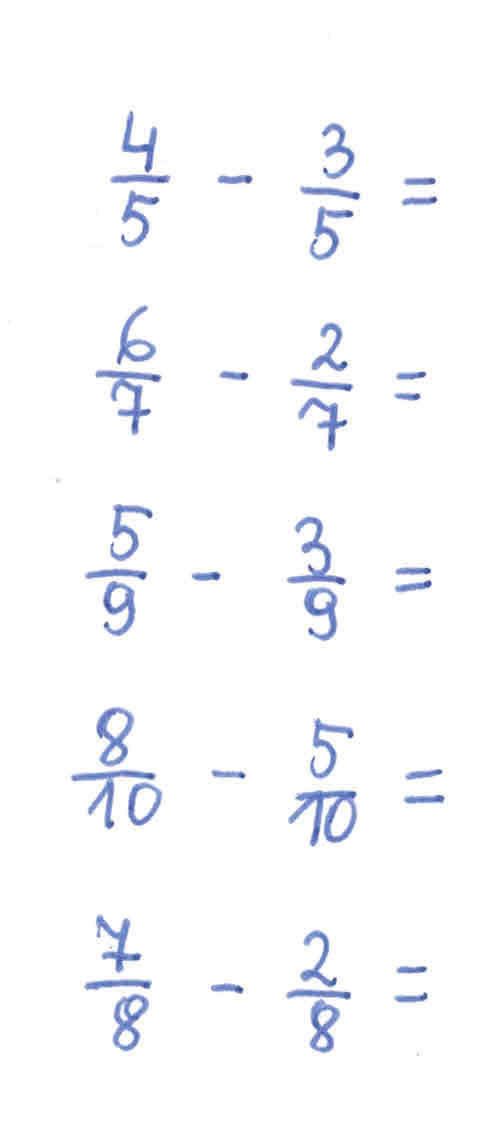 4/5 - 3/5 =
6/7 - 2/7 =
5/9 - 3/9 =
8/10 - 5/10 =
7/8 - 2/8 =